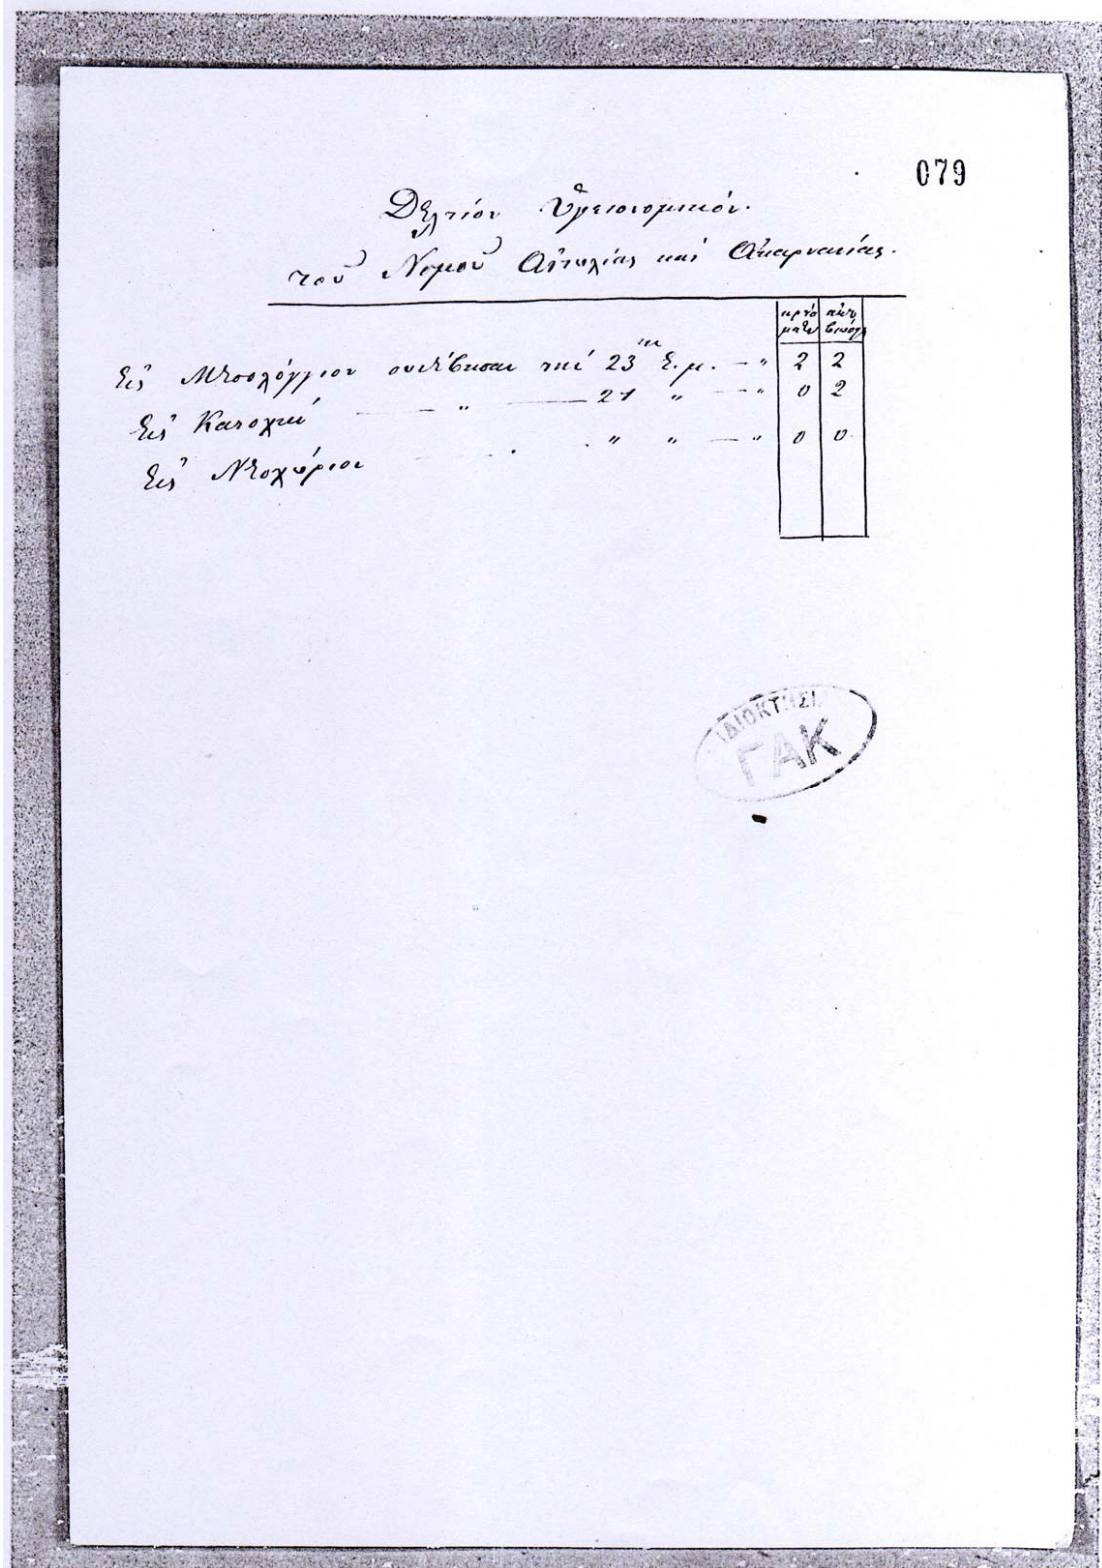 079
Δελτίον Ὑγειονομικόν.
τοῦ Νομοῦ Αἰτωλίας καὶ Ἀκαρνανίας.
κρού
σματα
Εἰς Μεσολόγγιον συνέβησαν τὴν 23ην Ε.μ. — " 2 2
Εἰς Κατοχὴν — " — 21 " — " 0 2
Εἰς Νεοχώριον " " — " 0 0
ΙΔΙΟΚΤΗΣΙ
ΓΑΚ